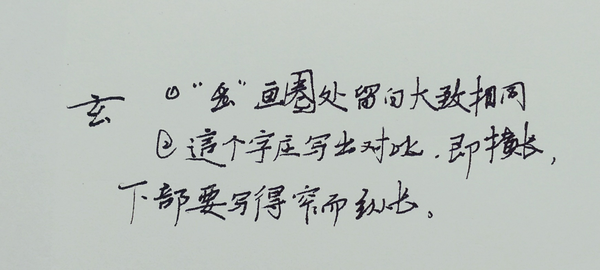 玄 ①“玄”画圈处留白大致相同
②這个字应写出对比.即横长,
下部要写得窄而纵长。